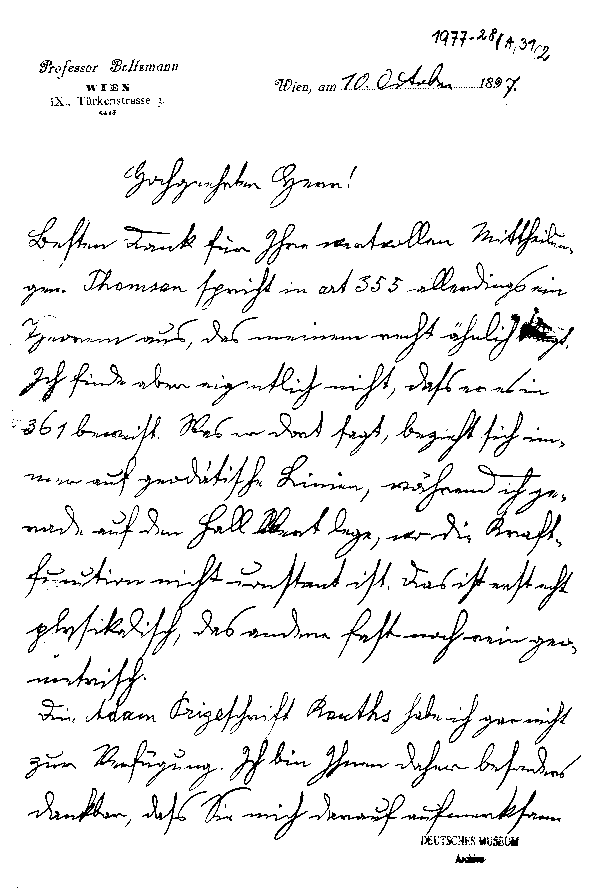 1977-28/A,31/2
Professor Boltzmann
WIEN
IX., Türkenstrasse 3.
Wien, am 10. October 1897.
Hochgeehrter Herr!
Besten Dank für Ihre wertvollen Mittheilun-
gen. Thomson spricht in art 355 allerdings ein
Theorem aus, das meinem recht ähnlich
Ich finde aber eigentlich nicht, dass er es in
361 beweist. Was er dort sagt, bezieht sich im-
mer auf geodätische Linien, während ich ge-
rade auf den Fall Wert lege, wo die Kraft-
function nicht constant ist. Das ist erst echt
physikalisch, das andere fast noch rein geo-
metrisch.
Die Adam Prizeschrift Rouths habe ich gar nicht
zur Verfügung. Ich bin Ihnen daher besonders
dankbar, dass Sie mich darauf aufmerksam
DEUTSCHES MUSEUM
Archive